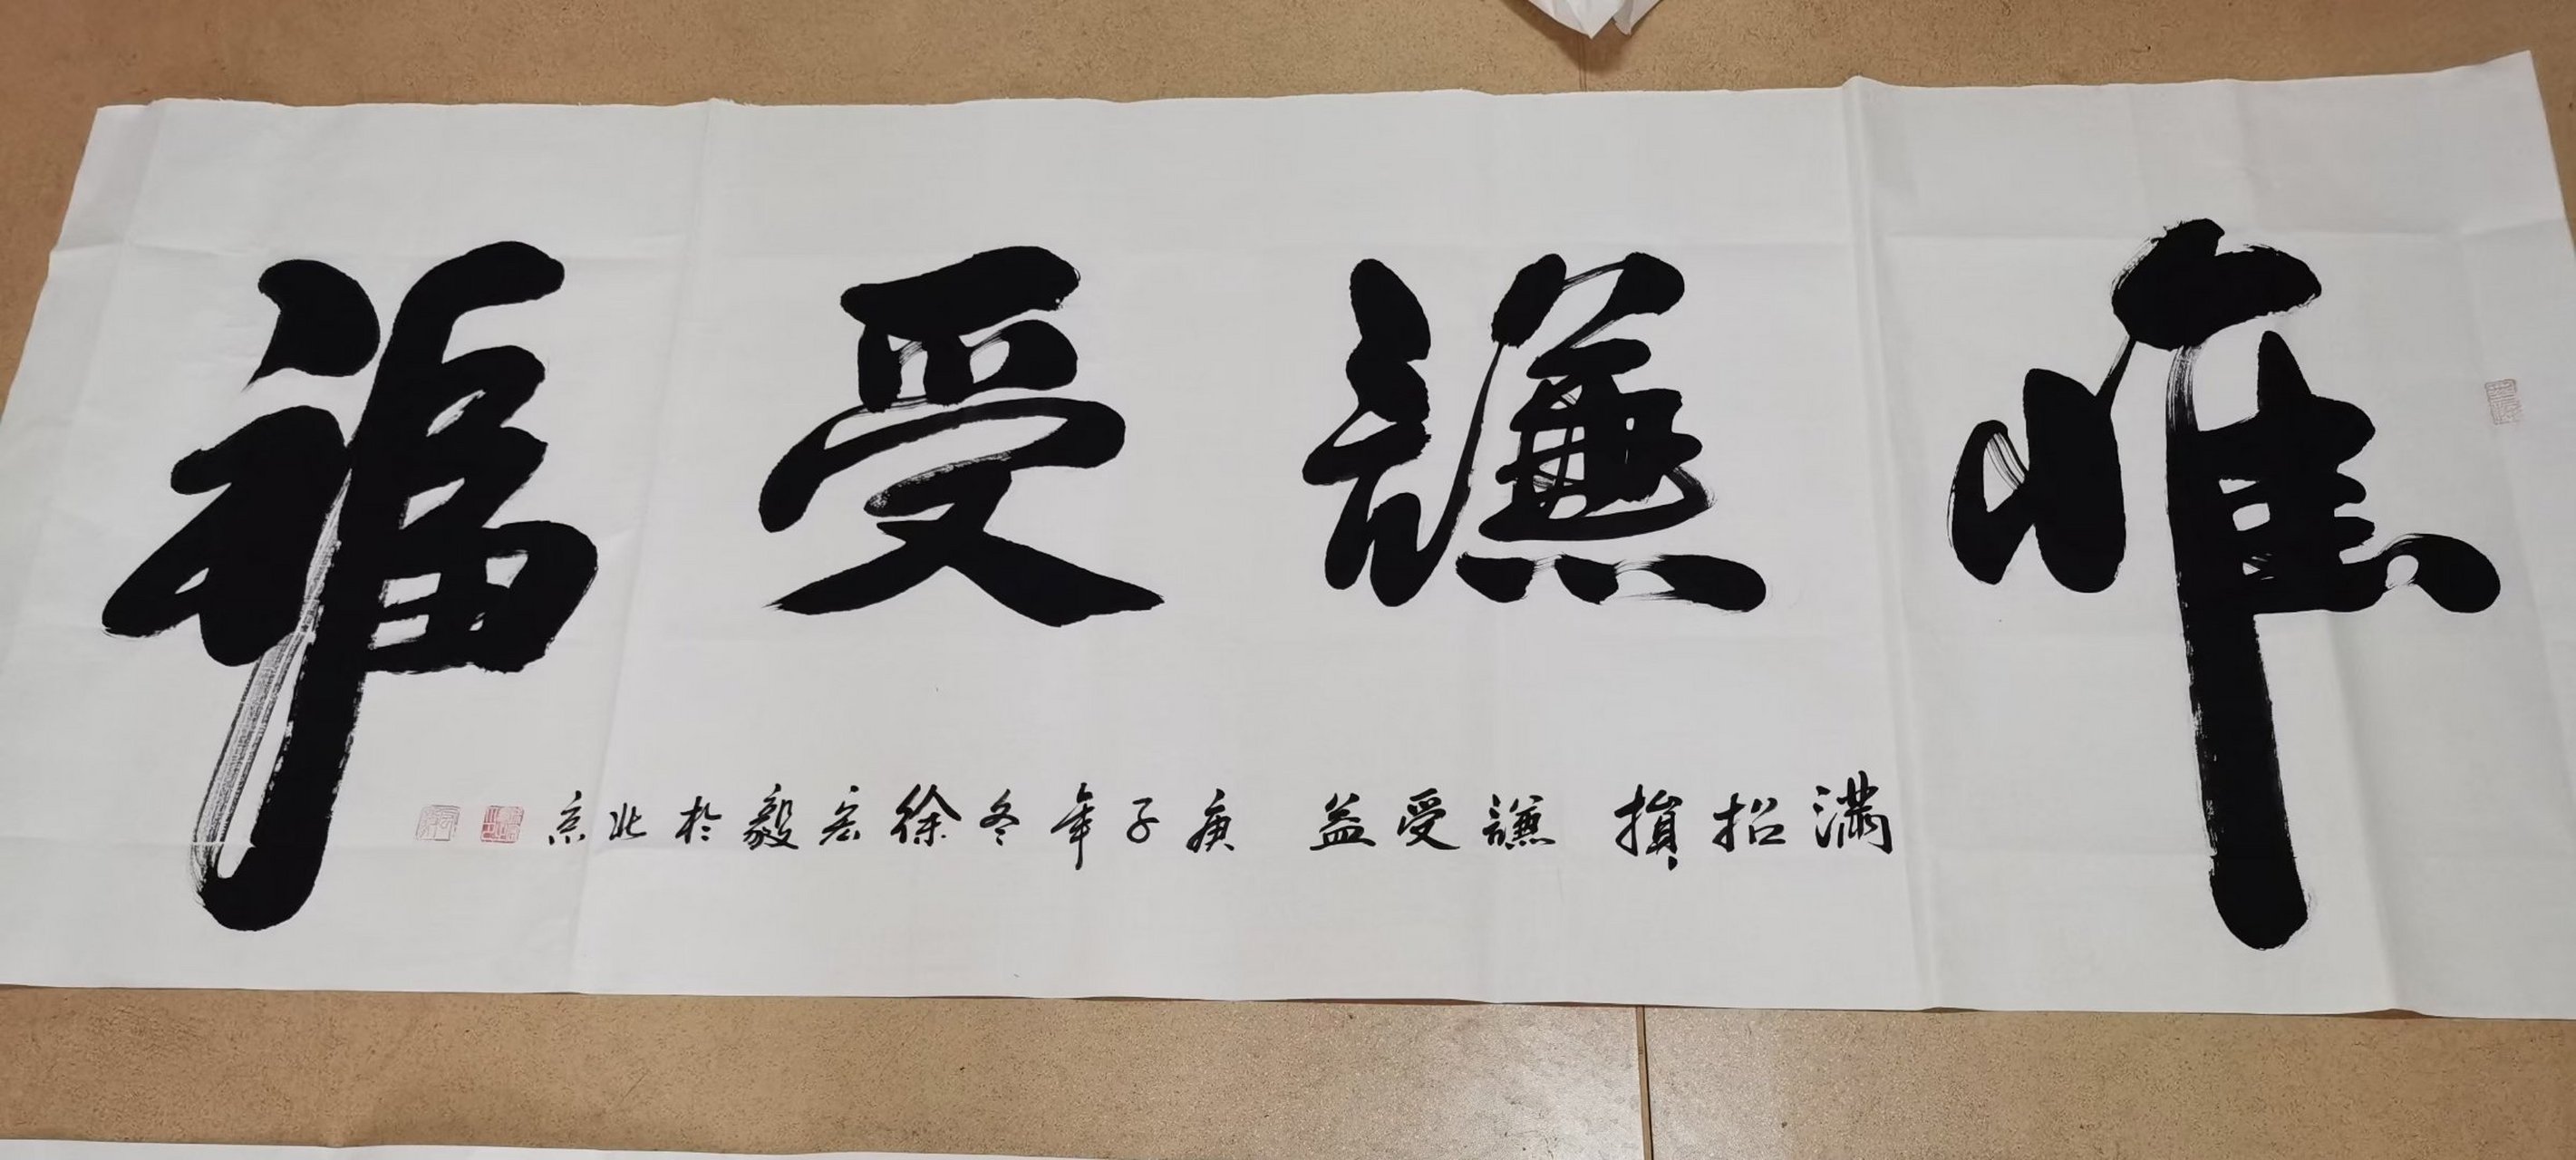 唯謙受福
滿招損 謙受益 庚子年冬徐宏毅於北京